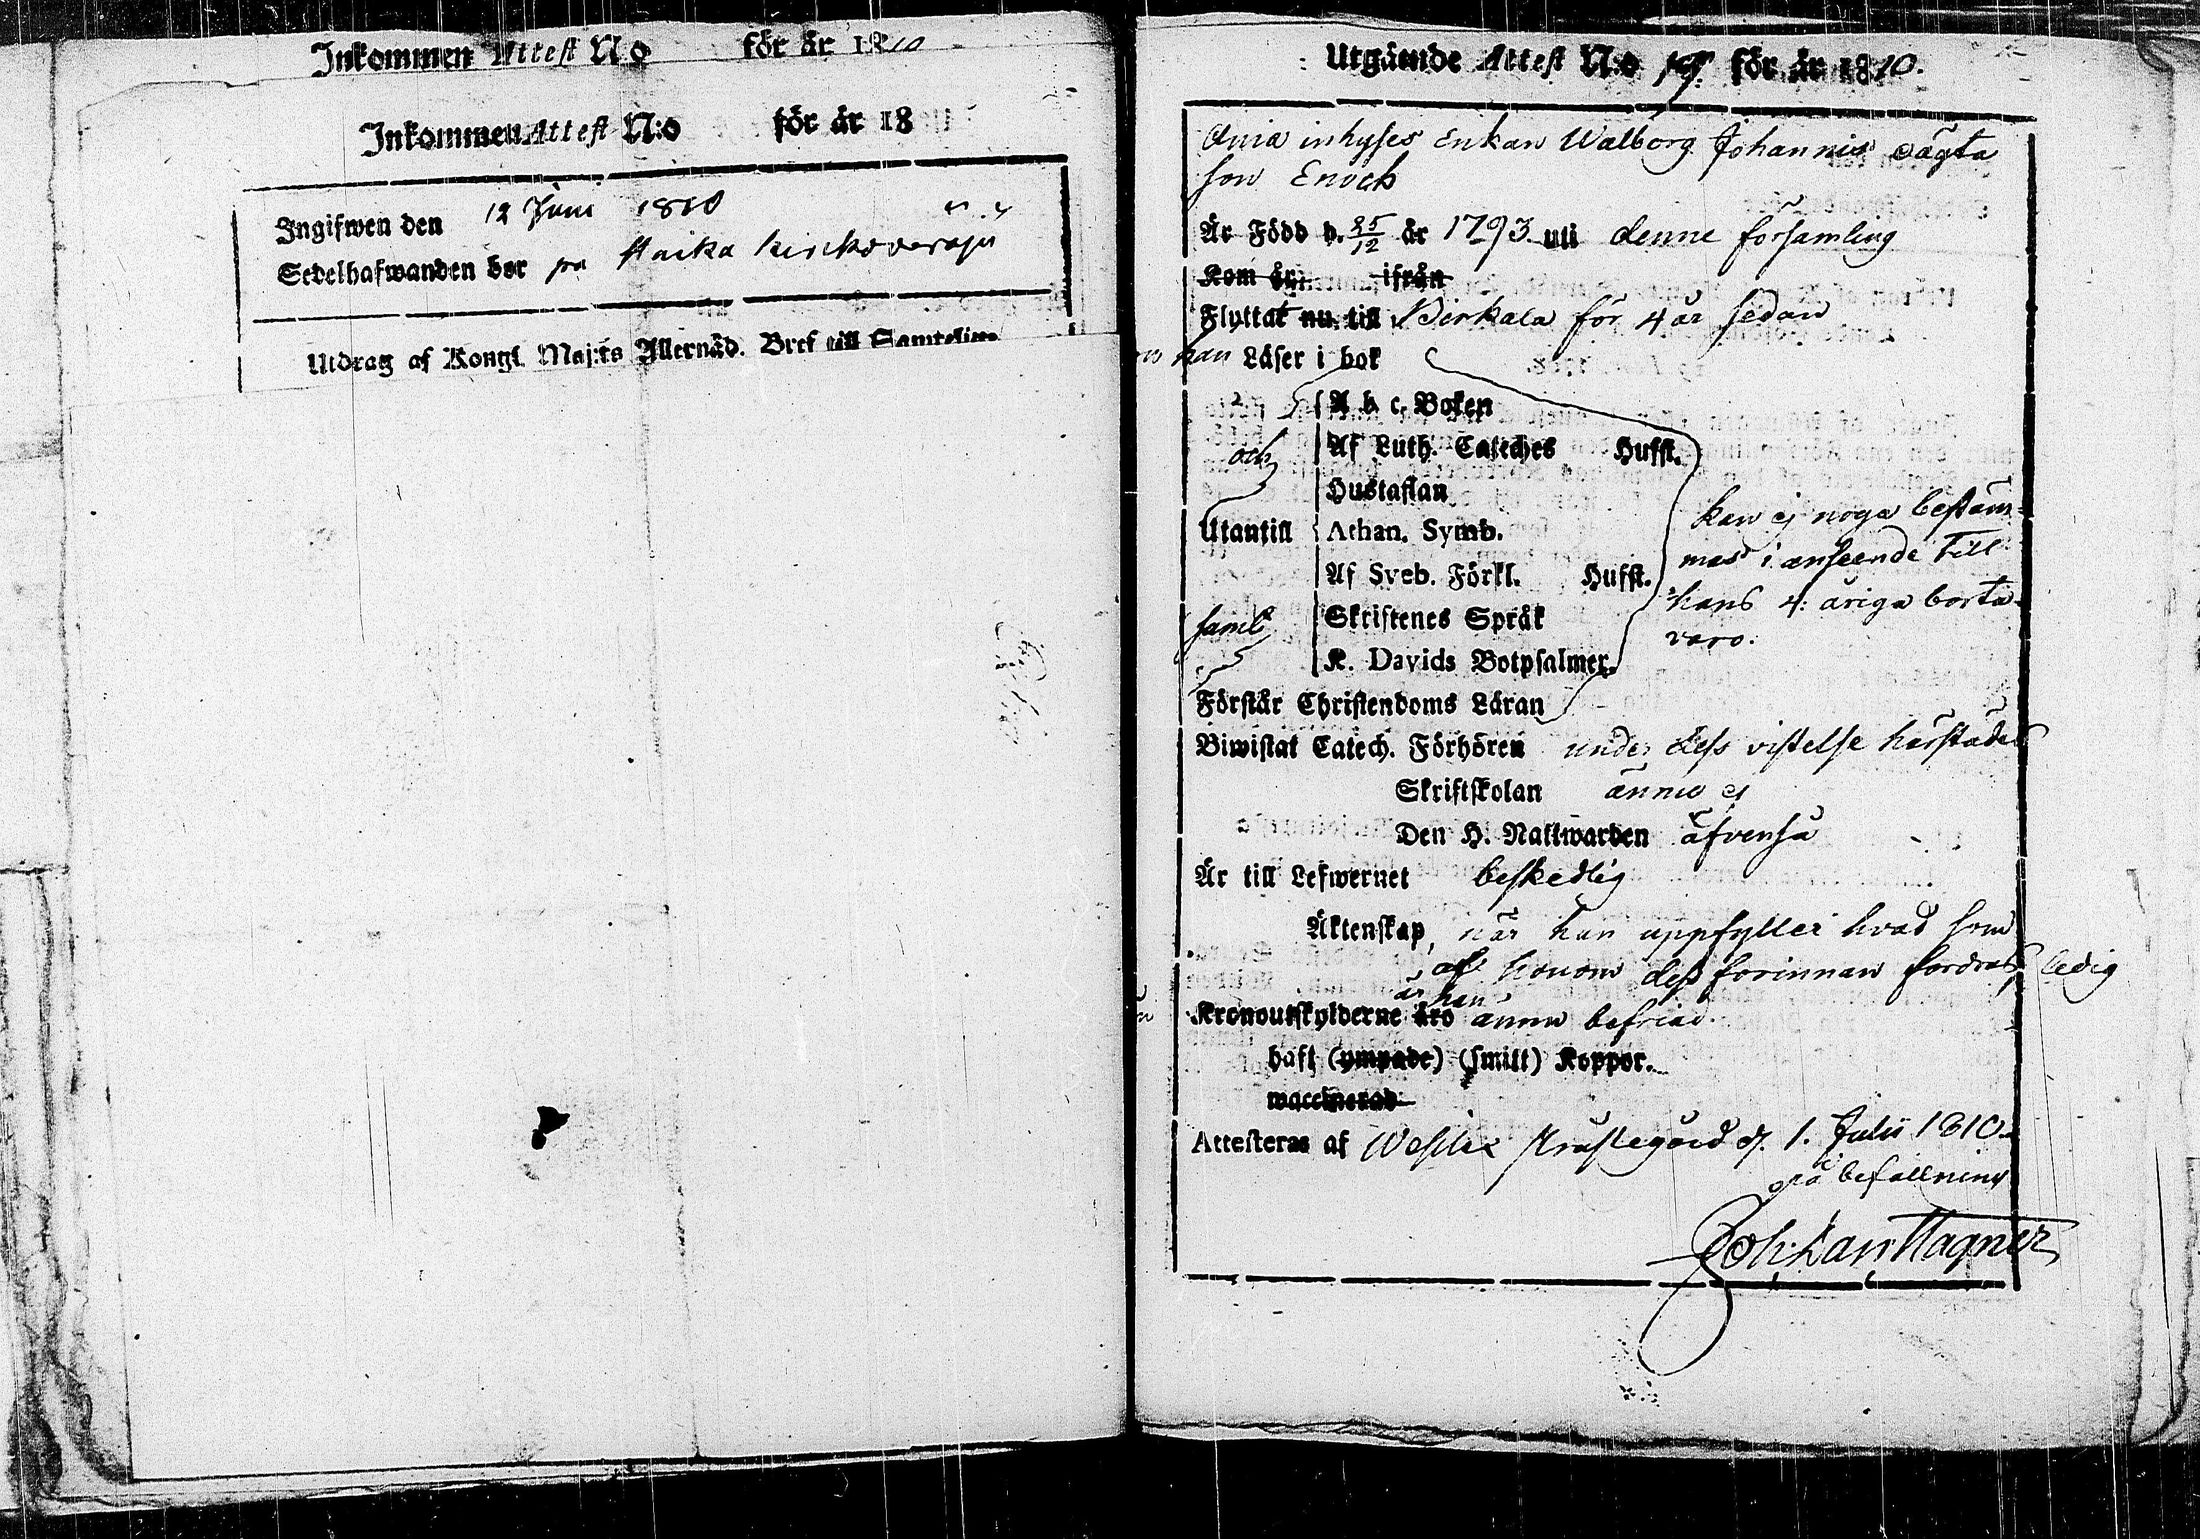 Inkommen Attest N:o för år 1810
Inkommen Attest N:o för år 18
Ingifwen den 12 Juni 1810
Sedelhafwanden bor på
Utdrag af Kongl. Maj:ts Allernåd. Bref till Samtelige
Utgående Attest N:o 19. för år 1810.
inhyses Enkan Walborg Johannis ägta
son Enoch
Är Född d. 25/12 år 1793 uti denne församling
Kom år ifrån
Flyttat nu till Birkala för 4 år sedan
han Läser i bok
A b c. Boken
och Af Luth. Cateches Hufst.
Hustaflan
kan ej noga bestäm-
Utantill Athan. Symb.
mas i anseende till
Af Sveb. Förkl. Hufst.
hans 4: åriga borta-
samt Skriftenes Språk
varo.
K. Davids Botpsalmer.
Förstår Christendoms Läran
Biwistat Catech. Förhören under dess vistelse härstädes
Skriftskolan ännu ej
Den H. Nattwarden äfvenså
Är till Lefwernet beskedlig
Äktenskap, när han uppfyller hvad som
af honom dess förinnan fordras, ledig
är han
Kronoutskylderne äro ännu befriad.
haft (ympade) (smitt) Koppor.
waccinerad
Attesteras af Prästegård d. 1. Julii 1810.
på befallning
Joh: Lan: Wagner